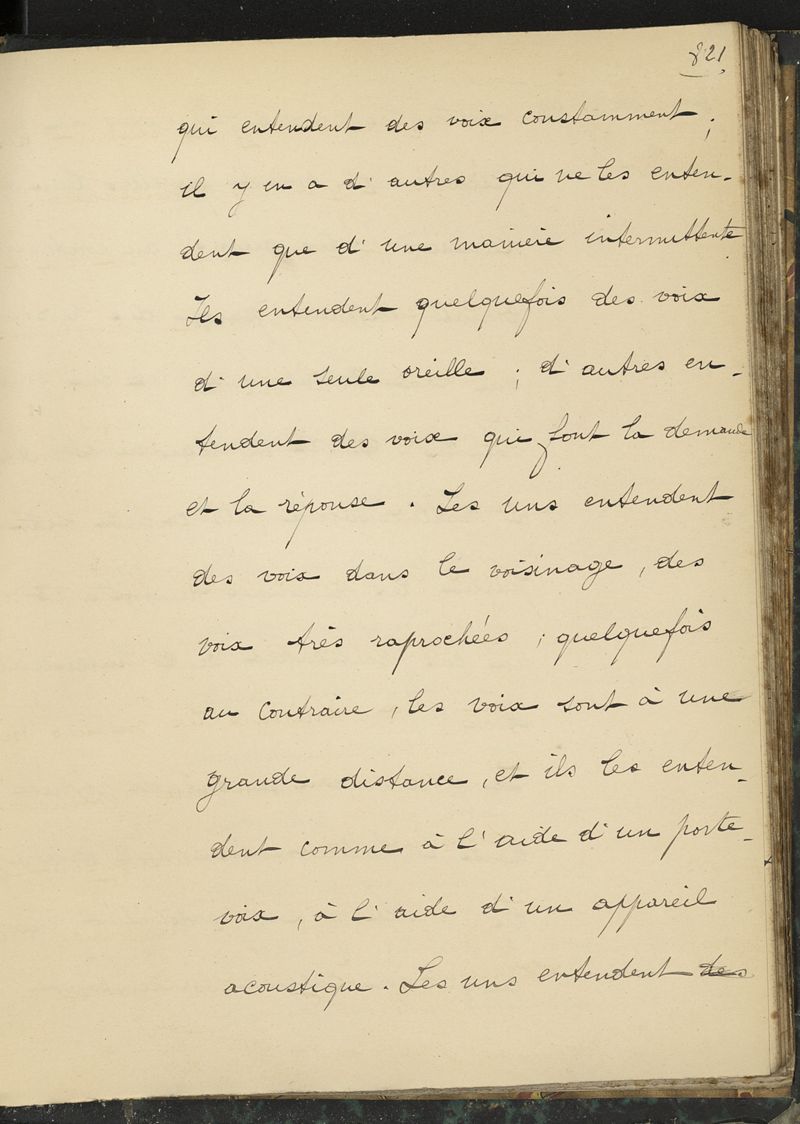 821
qui entendent des voix constamment ;
il y en a d'autres qui ne les enten-
dent que d'une manière intermittente
Ils entendent quelquefois des voix
d'une seule oreille ; d'autres en-
tendent des voix qui font la demande
et la réponse . Les uns entendent
des voix dans le voisinage , des
voix très raprochées ; quelquefois
au contraire , les voix sont à une
grande distance , et ils les enten-
dent comme à l'aide d'un porte-
voix , à l'aide d'un appareil
acoustique . Les uns entendent des